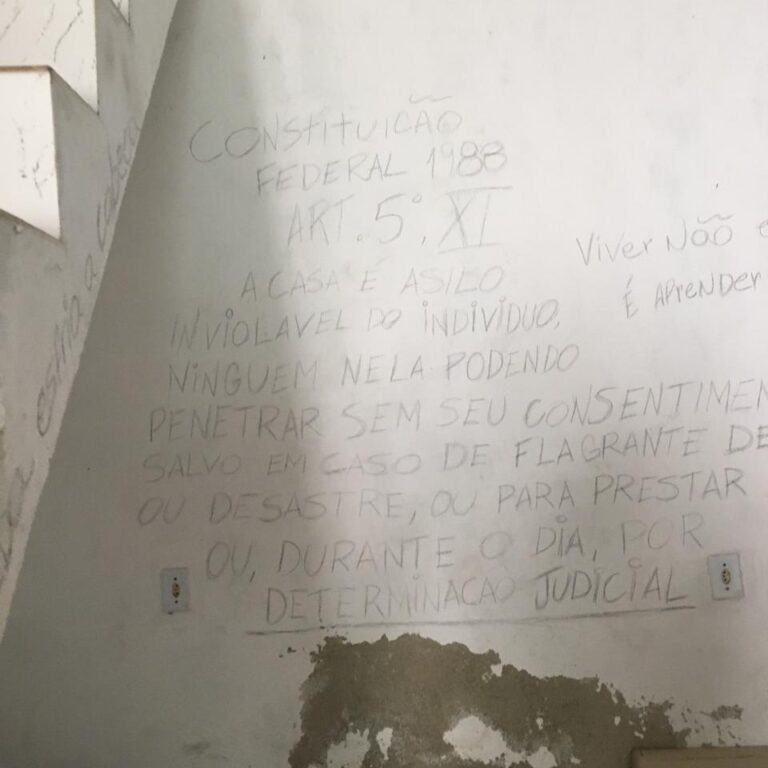 CONSTITUIÇÃO
FEDERAL 1988
ART. 5º, XI
A CASA É ASILO
INVIOLAVEL DO INDIVÍDUO,
NINGUEM NELA PODENDO
PENETRAR SEM SEU CONSENTIMEN
SALVO EM CASO DE FLAGRANTE DE
OU DESASTRE, OU PARA PRESTAR
OU, DURANTE O DIA, POR
DETERMINAÇAO JUDICIAL
Viver Não é
É APreNDer
esfria a cabeça